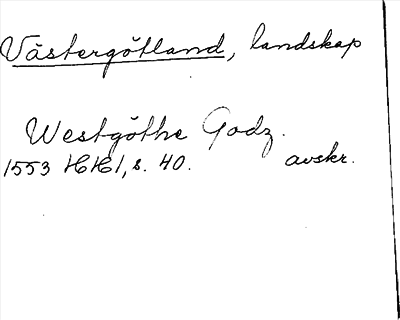 Västergötland, landskap
Westgöthe Godz.
1553 HH1, s. 40. avskr.